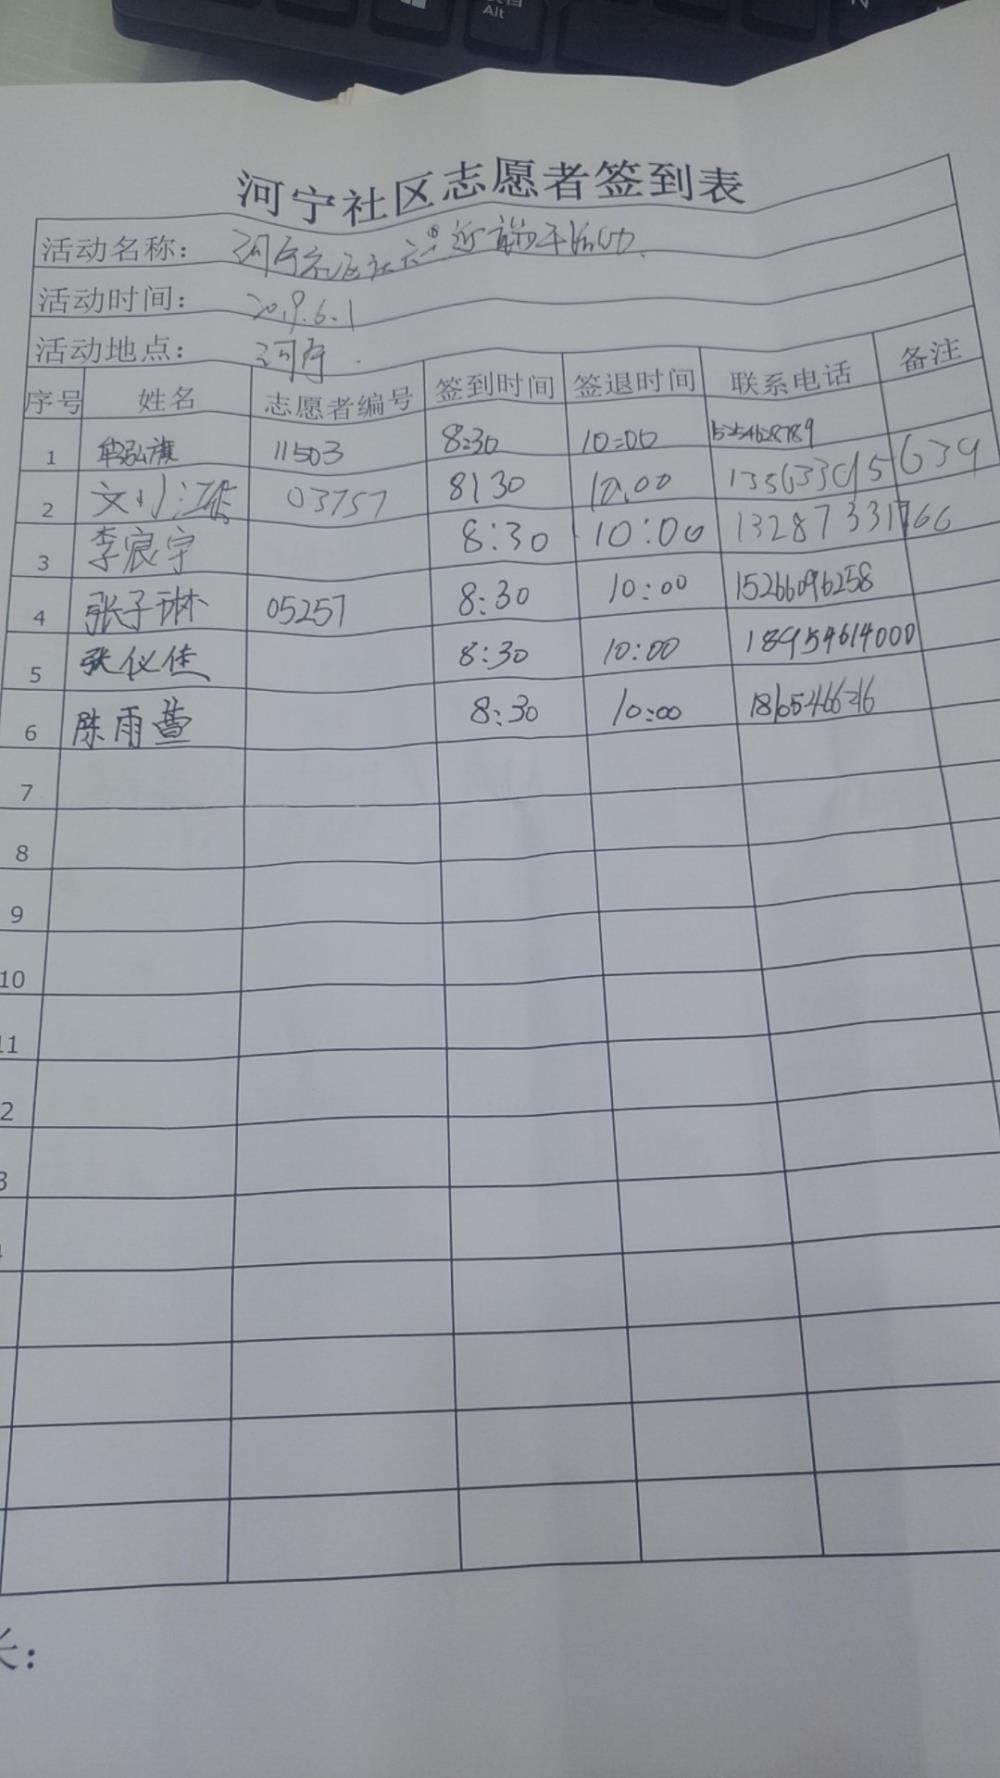 Alt
河宁社区志愿者签到表
活动名称： 河宁社区
活动时间： 2019.6.1
活动地点： 河宁
序号 姓名 志愿者编号 签到时间 签退时间 联系电话 备注
1 牟弘旗 11503 8:30 10:00
2 文小 03757 8:30 10:00 13563395639
3 李宸宇 8:30 10:00 13287331766
4 张子琳 05257 8:30 10:00 15266096258
5 张仪佳 8:30 10:00 18954614000
6 陈雨萱 8:30 10:00
7
8
9
10
11
2
3
长：